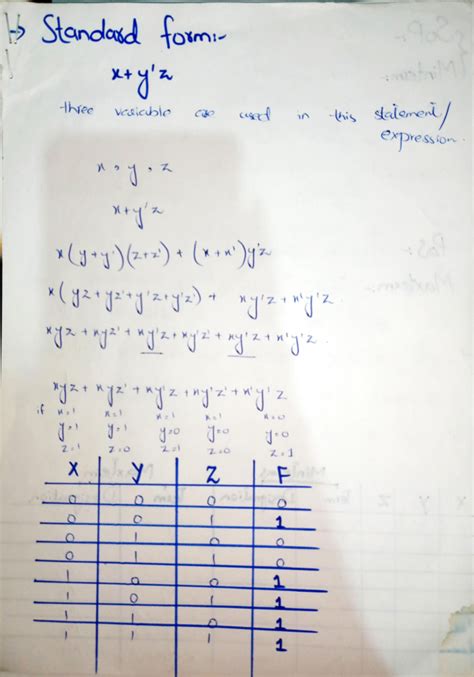 → Standard form:-
x+y'z
three variable are used in this statement/
expression.
x, y, z
x+y'z
x(y+y')(z+z') + (x+x')y'z
x(yz+yz'+y'z+y'z') + xy'z+x'y'z.
xyz+xyz'+xy'z+xy'z'+xy'z+x'y'z.
xyz+xyz'+xy'z+xy'z'+x'y'z
if x=1 x=1 x=1 x=1 x=0
y=1 y=1 y=0 y=0 y=0
z=1 z=0 z=1 z=0 z=1
X Y Z F
0 0 0 0
0 0 1 1
0 1 0 0
0 1 1 0
1 0 0 1
1 0 1 1
1 1 0 1
1 1 1 1